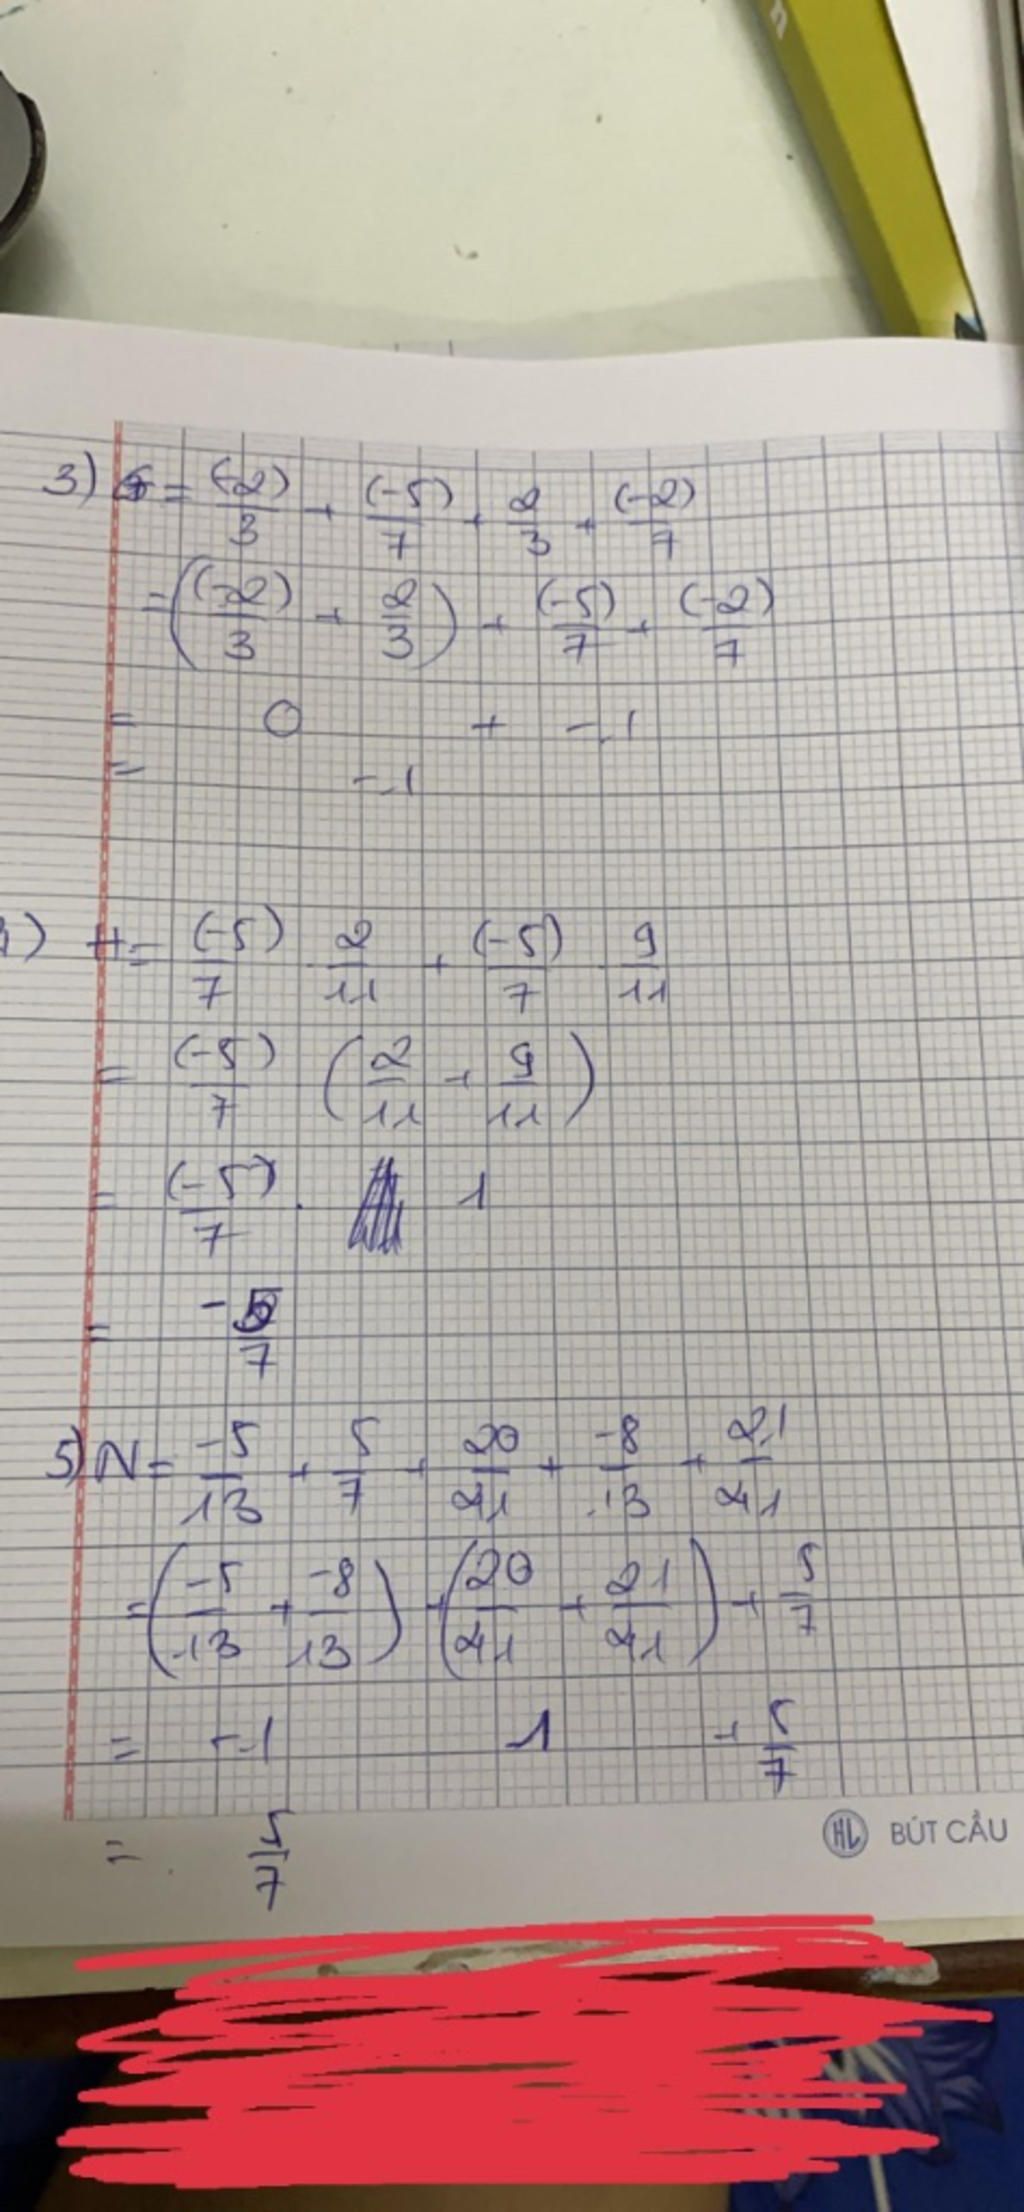 3) G = (-2)/3 + (-5)/7 + 2/3 + (-2)/7
= ((-2)/3 + 2/3) + (-5)/7 + (-2)/7
= 0 + -1
= -1
4) H = (-5)/7 · 2/11 + (-5)/7 · 9/11
= (-5)/7 (2/11 + 9/11)
= (-5)/7 · 1
= -5/7
5) N = -5/13 + 5/7 + 20/41 + -8/13 + 21/41
= (-5/13 + -8/13) + (20/41 + 21/41) + 5/7
= -1 1 + 5/7
= 5/7
HL BÚT CẦU